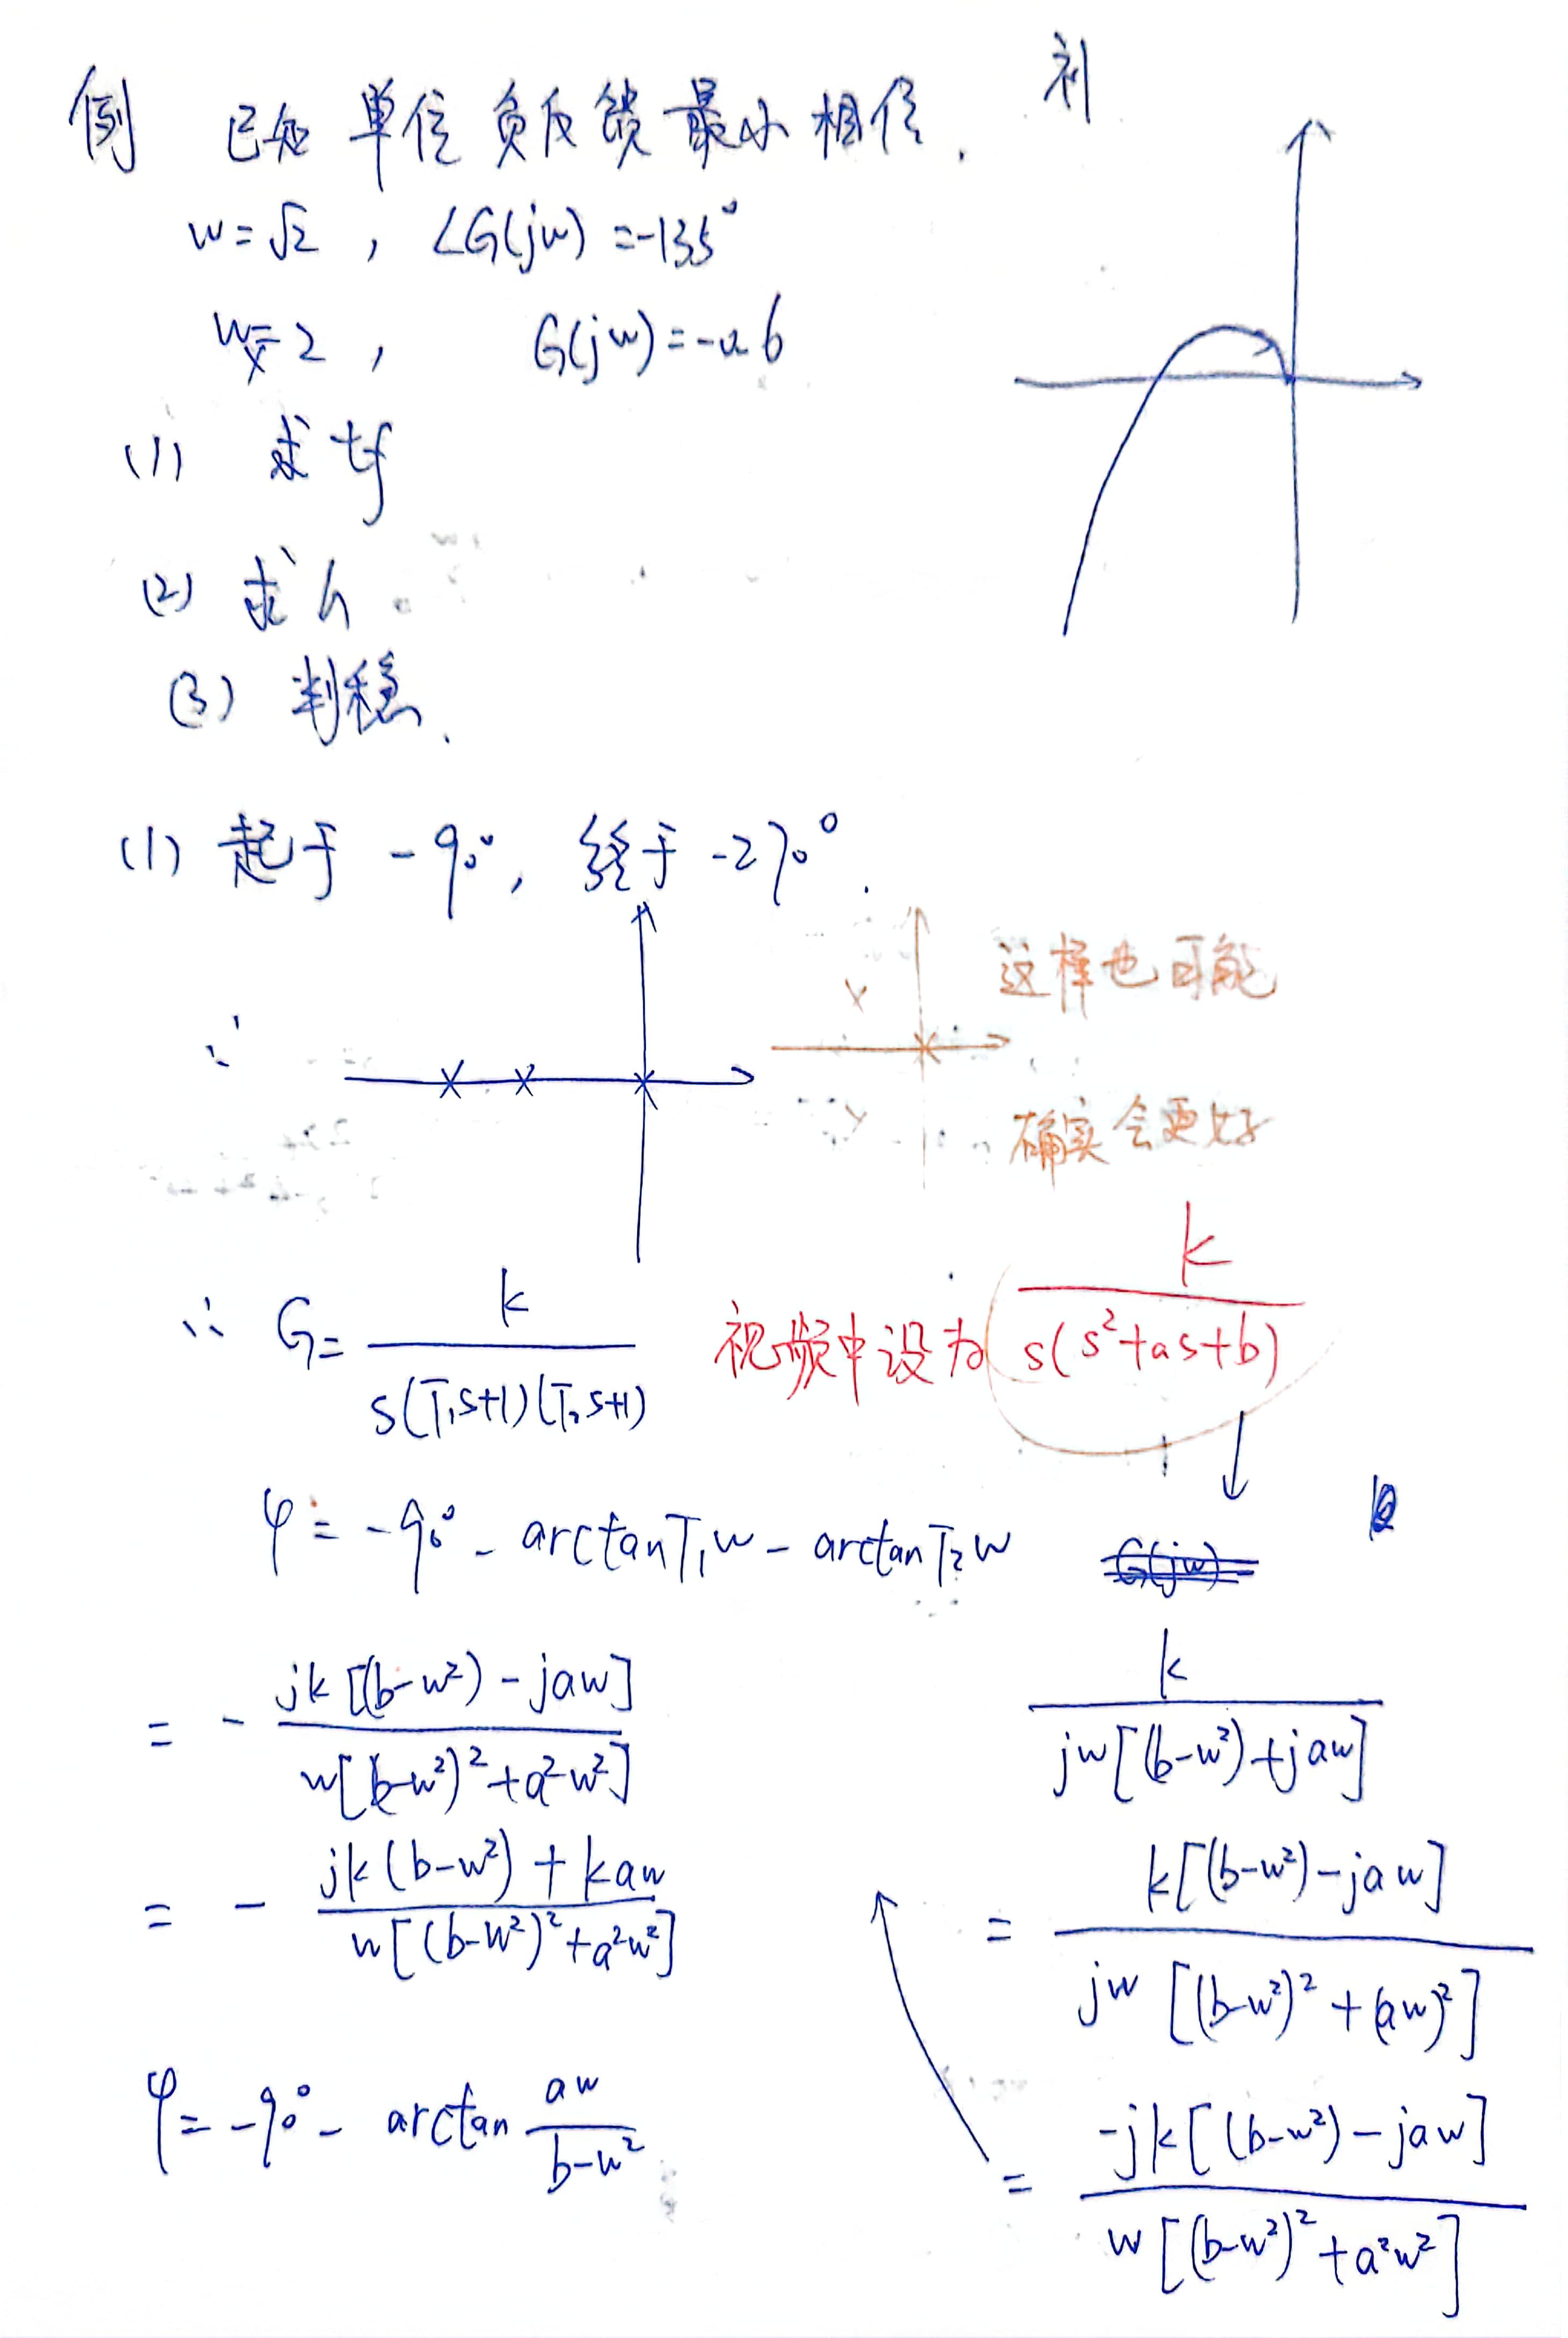 补
例 已知 单位负反馈最小相位.
w=√2 , ∠G(jw)=-135°
wₓ=2 , G(jw)=-0.6
(1) 求tf
(2) 求h
(3) 判稳.
(1) 起于 -90°, 终于 -270°.
这样也可能
∵
确实会更好
∴ G= k / s(T₁s+1)(T₂s+1) 视频中设为 k / s(s²+as+b)
φ= -90° - arctanT₁w - arctanT₂w
k / jw[(b-w²)+jaw]
= k[(b-w²)-jaw] / jw[(b-w²)²+(aw)²]
= -jk[(b-w²)-jaw] / w[(b-w²)²+a²w²]
= - jk[(b-w²)-jaw] / w[(b-w²)²+a²w²]
= - jk(b-w²)+kaw / w[(b-w²)²+a²w²]
φ= -90° - arctan aw / b-w²